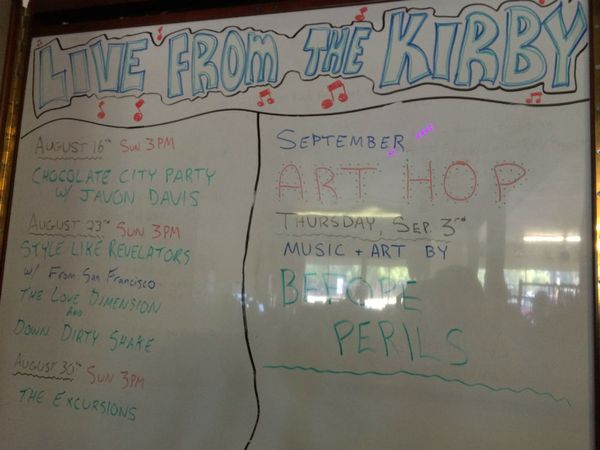 LIVE FROM THE KIRBY
AUGUST 16TH SUN 3PM
CHOCOLATE CITY PARTY
W/ JAVON DAVIS
AUGUST 23RD SUN 3PM
STYLE LIKE REVELATORS
W/ From San Francisco
THE LOVE DIMENSION
AND
DOWN DIRTY SHAKE
AUGUST 30TH SUN 3PM
THE EXCURSIONS
SEPTEMBER
ART HOP
THURSDAY, SEP. 3RD
MUSIC + ART BY
BEFORE
PERILS